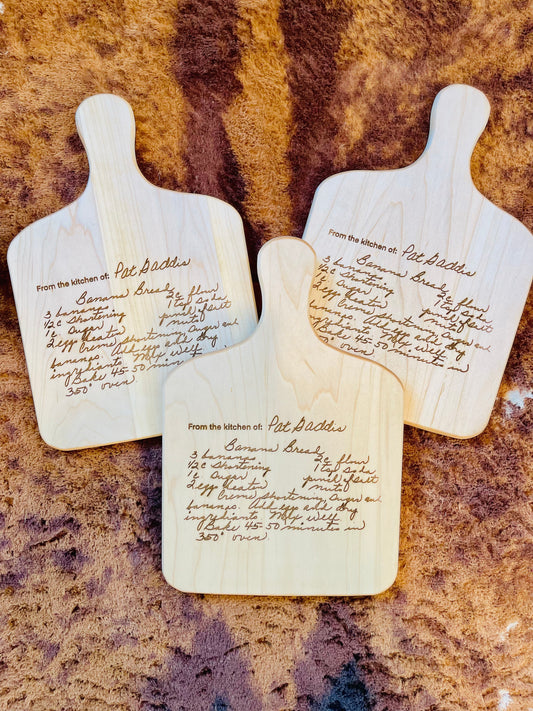 From the kitchen of: Pat Gaddis
Banana Bread
3 bananas 2c flour
1/2c Shortening 1 tsp soda
1c Sugar pinch of Salt
2 egg beaten (nuts)
Creme shortening, Sugar and
bananas. Add egg and dry
ingrdients. Mix well
Bake 45-50 minutes in
350° oven
From the kitchen of: Pat Gaddis
Banana Bread
3 bananas 2c flour
1/2c Shortening 1 tsp soda
1c Sugar pinch of Salt
2 egg beaten (nuts)
Creme shortening, Sugar and
bananas. Add egg and dry
ingrdients. Mix well
Bake 45-50 minutes in
350° oven
From the kitchen of: Pat Gaddis
Banana Bread
3 bananas 2c flour
1/2c Shortening 1 tsp soda
1c Sugar pinch of Salt
2 egg beaten (nuts)
Creme shortening, Sugar and
bananas. Add egg and dry
ingrdients. Mix well
Bake 45-50 minutes in
350° oven